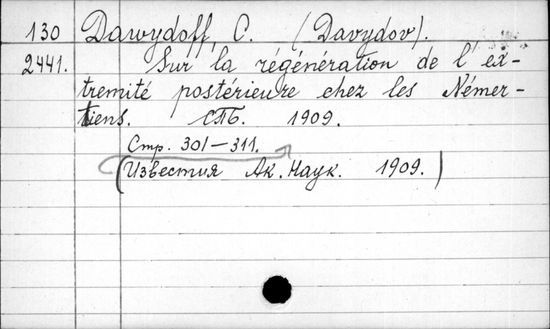 130 Dawydoff C. (Davydov).
2441. Sur la régénération de l'ex-
tremité postérieure chez les Némer-
tiens. СПБ. 1909.
Стр. 301—311.
(Известия Ак. Наук. 1909.)